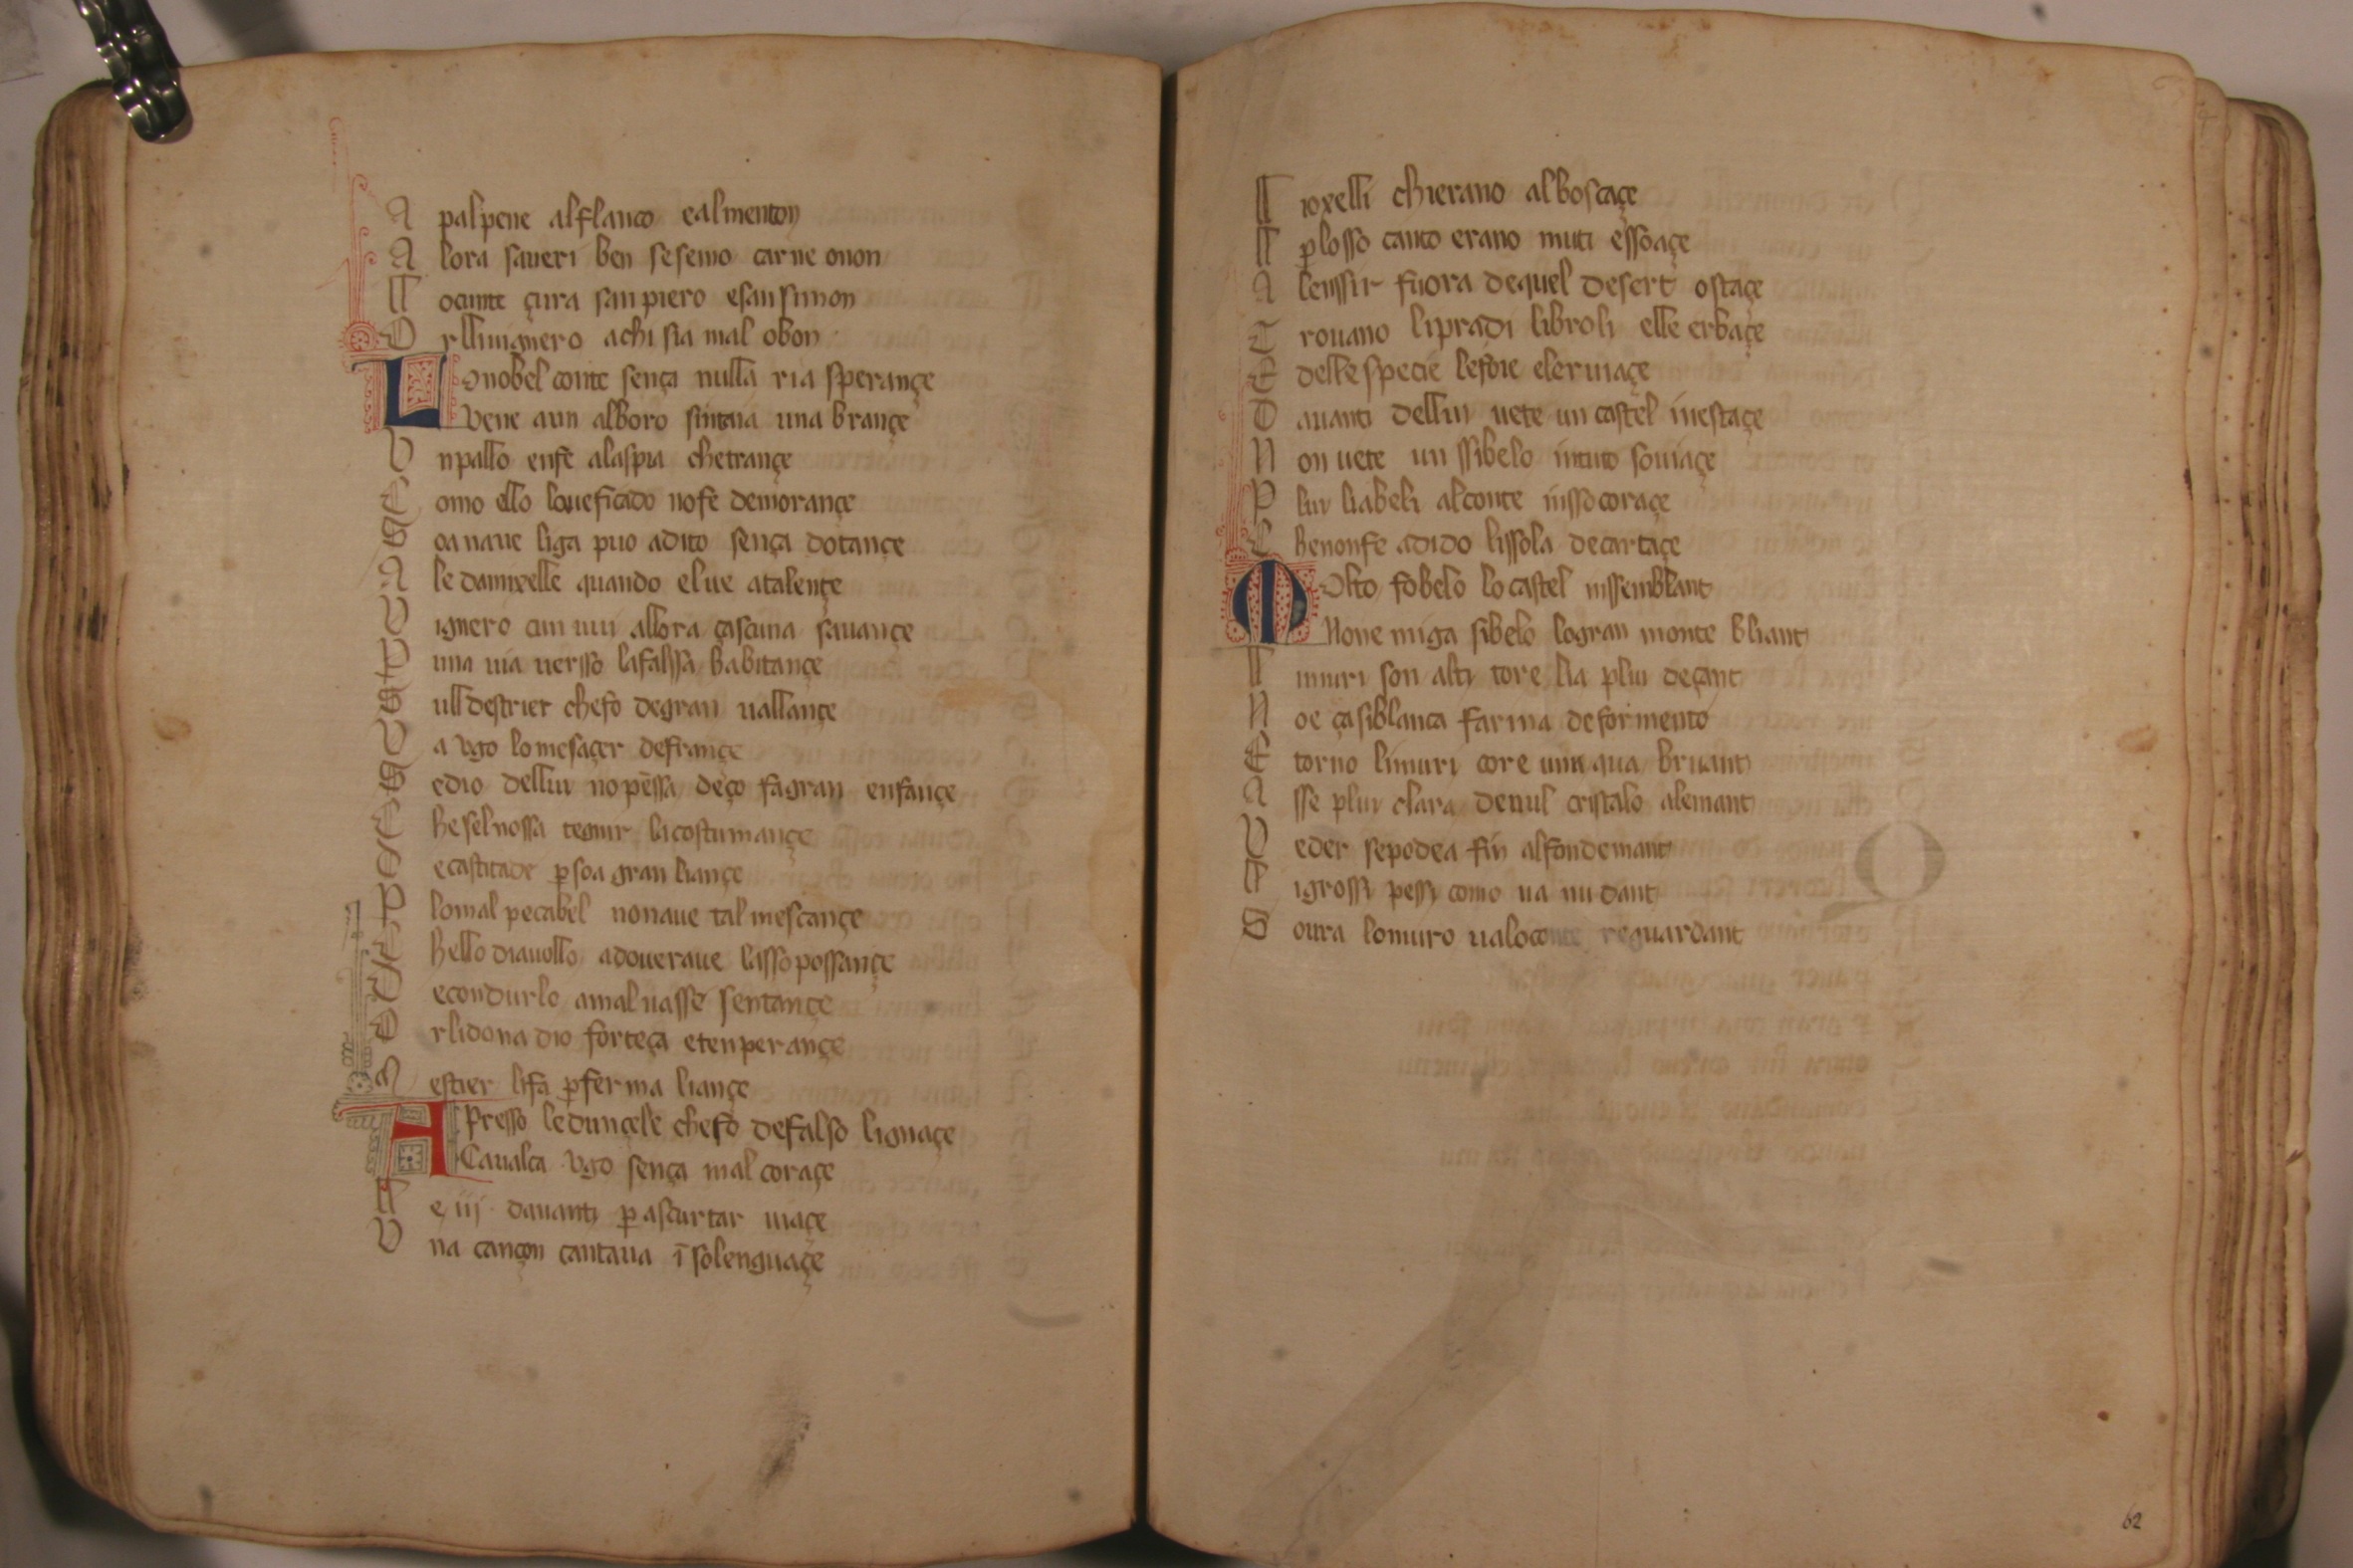 A palpene al flanco e al menton
A lora saveri ben se semo carne o non
II ocunte çura san piero e san simon
O rlli vignero a chi sia mal o bon
Lo nobel conte sença nulla ria sperançe
Vene a un alboro sintaia una brançe
V npallo en fe ala spia che trançe
C omo ello love ficado no fe demorançe
S oa nave liga puo a dito sença dotançe
A le damixelle quando el ve a talençe
V ignero cun mi allora çascuna s avançe
P una via verisso la falssa habitançe
S ull destrier che fo de gran vallançe
V a vgo lo mesaçer de françe
S edio de llui no pēssa de ço fa gran enfançe
C he sel vossa tegnir la costumançe
D e castitade p soa gran liançe
P lo mal pecabel non ave tal mescançe
C hello diavollo adoverave lasso possançe
D e condurlo a mal vasse sentançe
O r li dona dio forteça e tenperançe
M estier li fa p ferma liançe
A Presso le dunçele che fo de falso lignaçe
Cavalca vgo sença mal coraçe
LL e iij davanti p ascurtar viaçe
V na cançon cantava ī so lenguaçe
II ioxelli chi erano al boscaçe
II p losso canto erano muti e ssoaçe
A le inssir fuora de quel desert ostaçe
T rovano li pradi li broli e lle erbaçe
E delle specie le foie e le rinaçe
D avanti de llui vete un castel in estaçe
N on vete un ssi belo in tuto so viaçe
P lui li abeli al conte in sso coraçe
C he non fe a dido lissola de cartaçe
Molto fo belo lo castel in ssenblant
None miga si belo lo gran monte bliant
II muri son alti tore li a plui de çant
N oe ça si blanca farina de formento
E torno li muri core un aqua bruiant
A sse plui clara de nul cristalo alemant
V eder se podea fin al fondemant
LL i grossi pessi como va nudant
S oura lo muro va lo conte reguardant
62